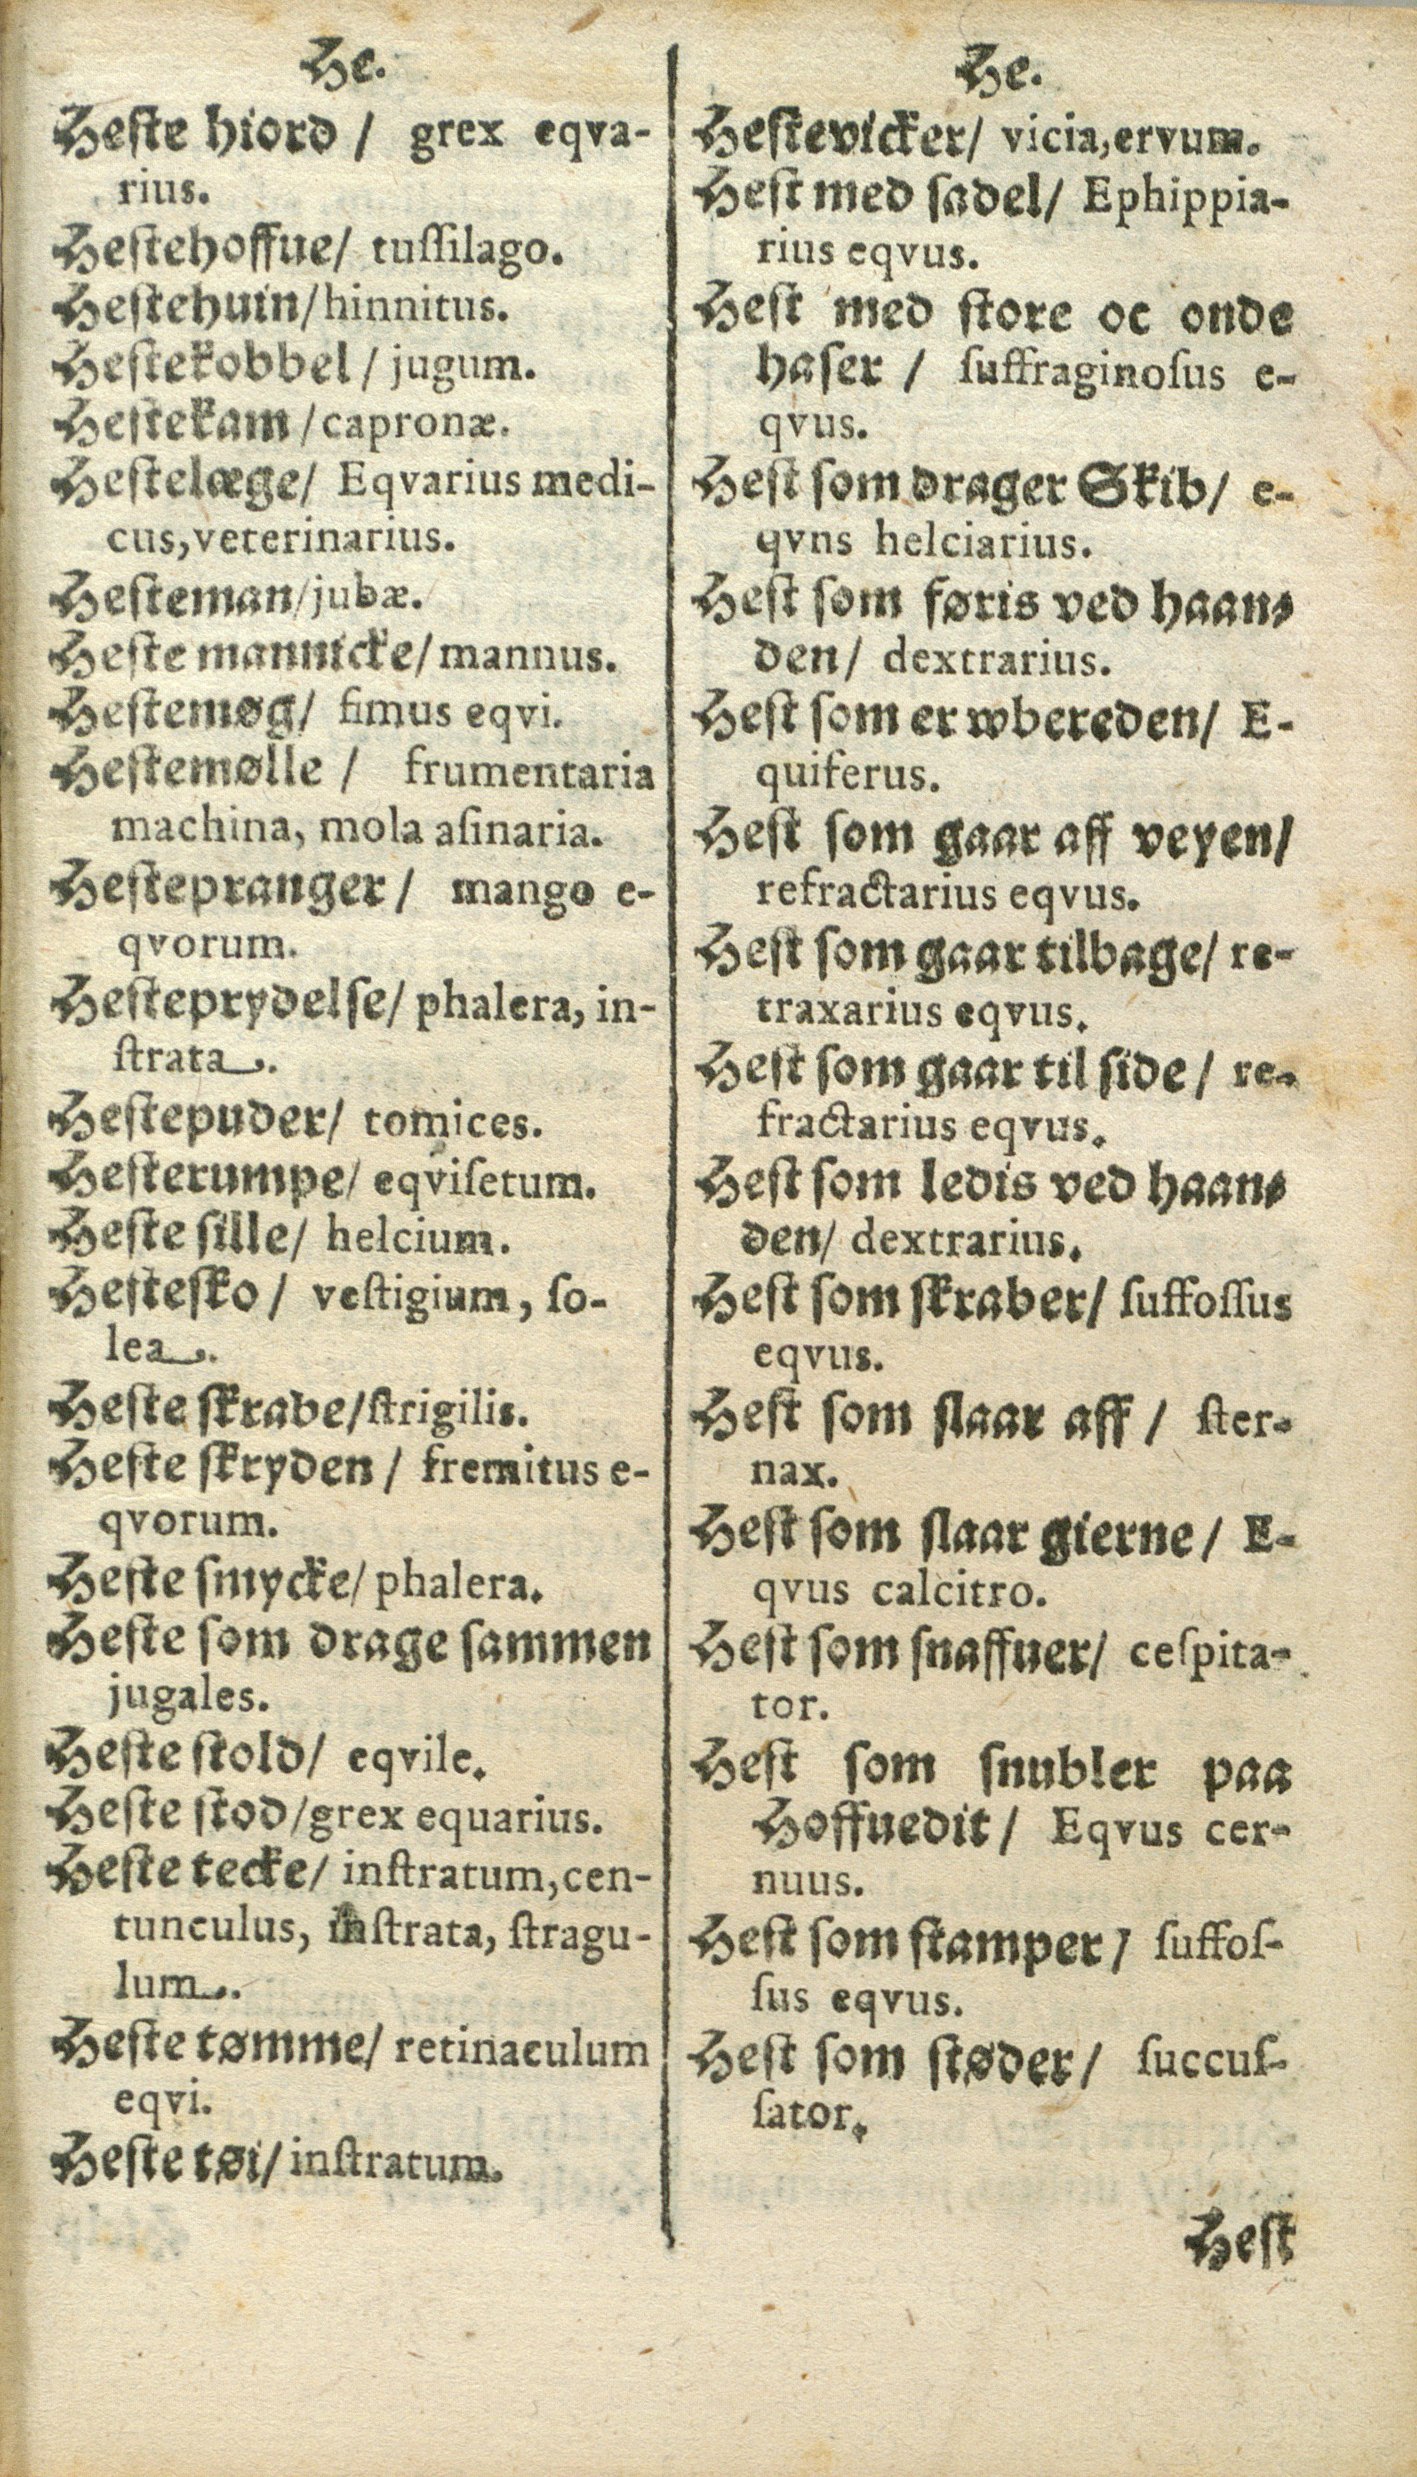 He.
Heſte hiord / grex eqva-
rius.
Heſtehoffue/ tuſſilago.
Heſtehuin/hinnitus.
Heſtekobbel / jugum.
Heſtekam /capronæ.
Heſtelæge/ Eqvarius medi-
cus,veterinarius.
Heſteman/jubæ.
Heſte mannicke/mannus.
Heſtemøg/ fimus eqvi.
Heſtemølle / frumentaria
machina, mola aſinaria.
Heſtepranger/ mango e-
qvorum.
Heſteprydelſe/ phalera, in-
ſtrata.
Heſtepuder/ tomices.
Heſterumpe/ eqviſetum.
Heſte ſille/ helcium.
Heſteſko / veſtigium, ſo-
lea.
Heſte ſkrabe/ſtrigilis.
Heſte ſkryden / fremitus e-
qvorum.
Heſte ſmycke/ phalera.
Heſte ſom drage ſammen
jugales.
Heſte ſtold/ eqvile.
Heſte ſtod/grex equarius.
Heſte tecke/ inſtratum,cen-
tunculus, inſtrata, ſtragu-
lum.
Heſte tømme/ retinaculum
eqvi.
Heſte tøi/ inſtratum.
He.
Heſtevicker/ vicia,ervum.
Heſt med ſadel/ Ephippia-
rius eqvus.
Heſt med ſtore oc onde
haſer / ſuffraginoſus e-
qvus.
Heſt ſom drager Skib/ e-
qvns helciarius.
Heſt ſom føris ved haan-
den/ dextrarius.
Heſt ſom er wbereden/ E-
quiferus.
Heſt ſom gaar aff veyen/
refractarius eqvus.
Heſt ſom gaar tilbage/ re-
traxarius eqvus.
Heſt ſom gaar til ſide/ re-
fractarius eqvus.
Heſt ſom ledis ved haan-
den/ dextrarius.
Heſt ſom ſkraber/ ſuffoſſus
eqvus.
Heſt ſom ſlaar aff / ſter-
nax.
Heſt ſom ſlaar gierne/ E-
qvus calcitro.
Heſt ſom ſnaffuer/ ceſpita-
tor.
Heſt ſom ſnubler paa
Hoffuedit/ Eqvus cer-
nuus.
Heſt ſom ſtamper/ ſuffoſ-
ſus eqvus.
Heſt ſom ſtøder/ ſuccuſ-
ſator.
Heſt